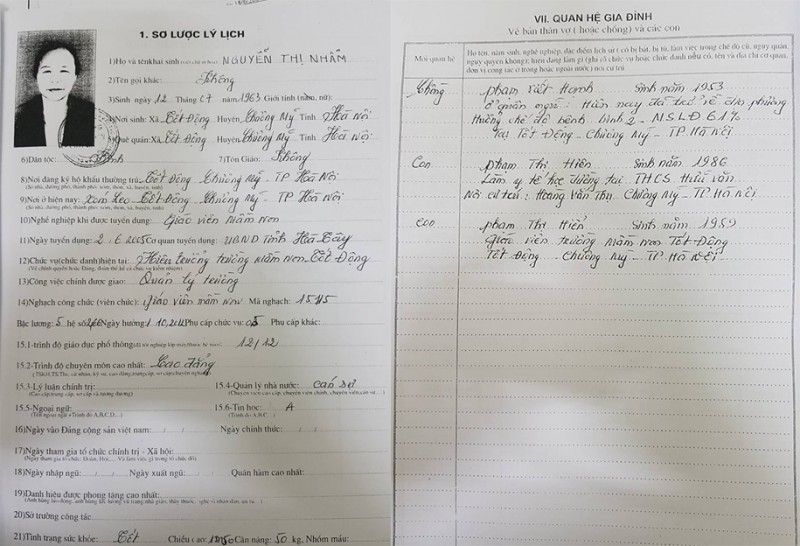 1. SƠ LƯỢC LÝ LỊCH
1)Họ và tên khai sinh NGUYỄN THỊ NHẨM
2)Tên gọi khác: Không
3)Sinh ngày 12 Tháng 07 năm 1963 Giới tính (nam, nữ):
4)Nơi sinh: Xã Tốt Động Huyện Chương Mỹ Tỉnh Hà Nội
5)Quê quán: Xã Tốt Động, Huyện Chương Mỹ Tỉnh Hà Nội
6)Dân tộc: Kinh 7)Tôn Giáo: Không
8)Nơi đăng ký hộ khẩu thường trú: Tốt Động Chương Mỹ - TP Hà Nội
(Số nhà, đường phố, thành phố; xóm, thôn, xã, huyện, tỉnh)
9)Nơi ở hiện nay: Xóm Leo - Tốt Động - Chương Mỹ - TP Hà Nội
(Số nhà, đường phố, thành phố; xóm, thôn, xã, huyện, tỉnh)
10)Nghề nghiệp khi được tuyển dụng: Giáo viên Mầm Non
11)Ngày tuyển dụng: 2.6.2005 Cơ quan tuyển dụng: UBND Tỉnh Hà Tây
12)Chức vụ (chức danh) hiện tại: Hiệu trưởng trường mầm non Tốt Động
(Về chính quyền hoặc Đảng, đoàn thể, kể cả chức vụ kiêm nhiệm)
13)Công việc chính được giao: Quản lý trường
14)Ngạch công chức (viên chức): giáo viên mầm non Mã ngạch: 15115
Bậc lương: 5 hệ số Ngày hưởng: Phụ cấp chức vụ: Phụ cấp khác:
15.1-trình độ giáo dục phổ thông 12/12
15.2-Trình độ chuyên môn cao nhất: Cao đẳng
15.3-Lý luận chính trị: 15.4-Quản lý nhà nước: cán sự
(Cao cấp, trung cấp, sơ cấp và tương đương) (Chuyên viên cao cấp, chuyên viên chính, chuyên viên, cán sự...)
15.5-Ngoại ngữ: 15.6-Tin học: A
(Tên ngoại ngữ + Trình độ A,B,C,D....) (Trình độ A,B,C...)
16)Ngày vào Đảng cộng sản việt nam: Ngày chính thức:
17)Ngày tham gia tổ chức chính trị - Xã hội:
18)Ngày nhập ngũ: Ngày xuất ngũ: Quân hàm cao nhất:
19)Danh hiệu được phong tặng cao nhất:
20)Sở trường công tác
21)Tình trạng sức khỏe: Tốt Chiều cao: 1m50 Cân nặng: 50 kg, Nhóm máu:
VII. QUAN HỆ GIA ĐÌNH
Về bản thân vợ ( hoặc chồng) và các con
Mối quan hệ
Họ tên, năm sinh, nghề nghiệp, đặc điểm lịch sử
Chồng Phạm Viết Hanh Sinh năm 1953
Hiện nay đã trở về địa phương
Hưởng chế độ bệnh binh 2 - MSLĐ 61%
Tại Tốt Động - Chương Mỹ - TP Hà Nội
Con Phạm Thị Hiên Sinh năm 1986
Làm y tế học đường tại THCS Hữu Văn
Nơi cư trú: Hoàng Văn Thụ, Chương Mỹ - TP Hà Nội
Con Phạm Thị Hiển Sinh năm
Giáo viên trường Mầm Non Tốt Động
Tốt Động - Chương Mỹ - TP Hà Nội